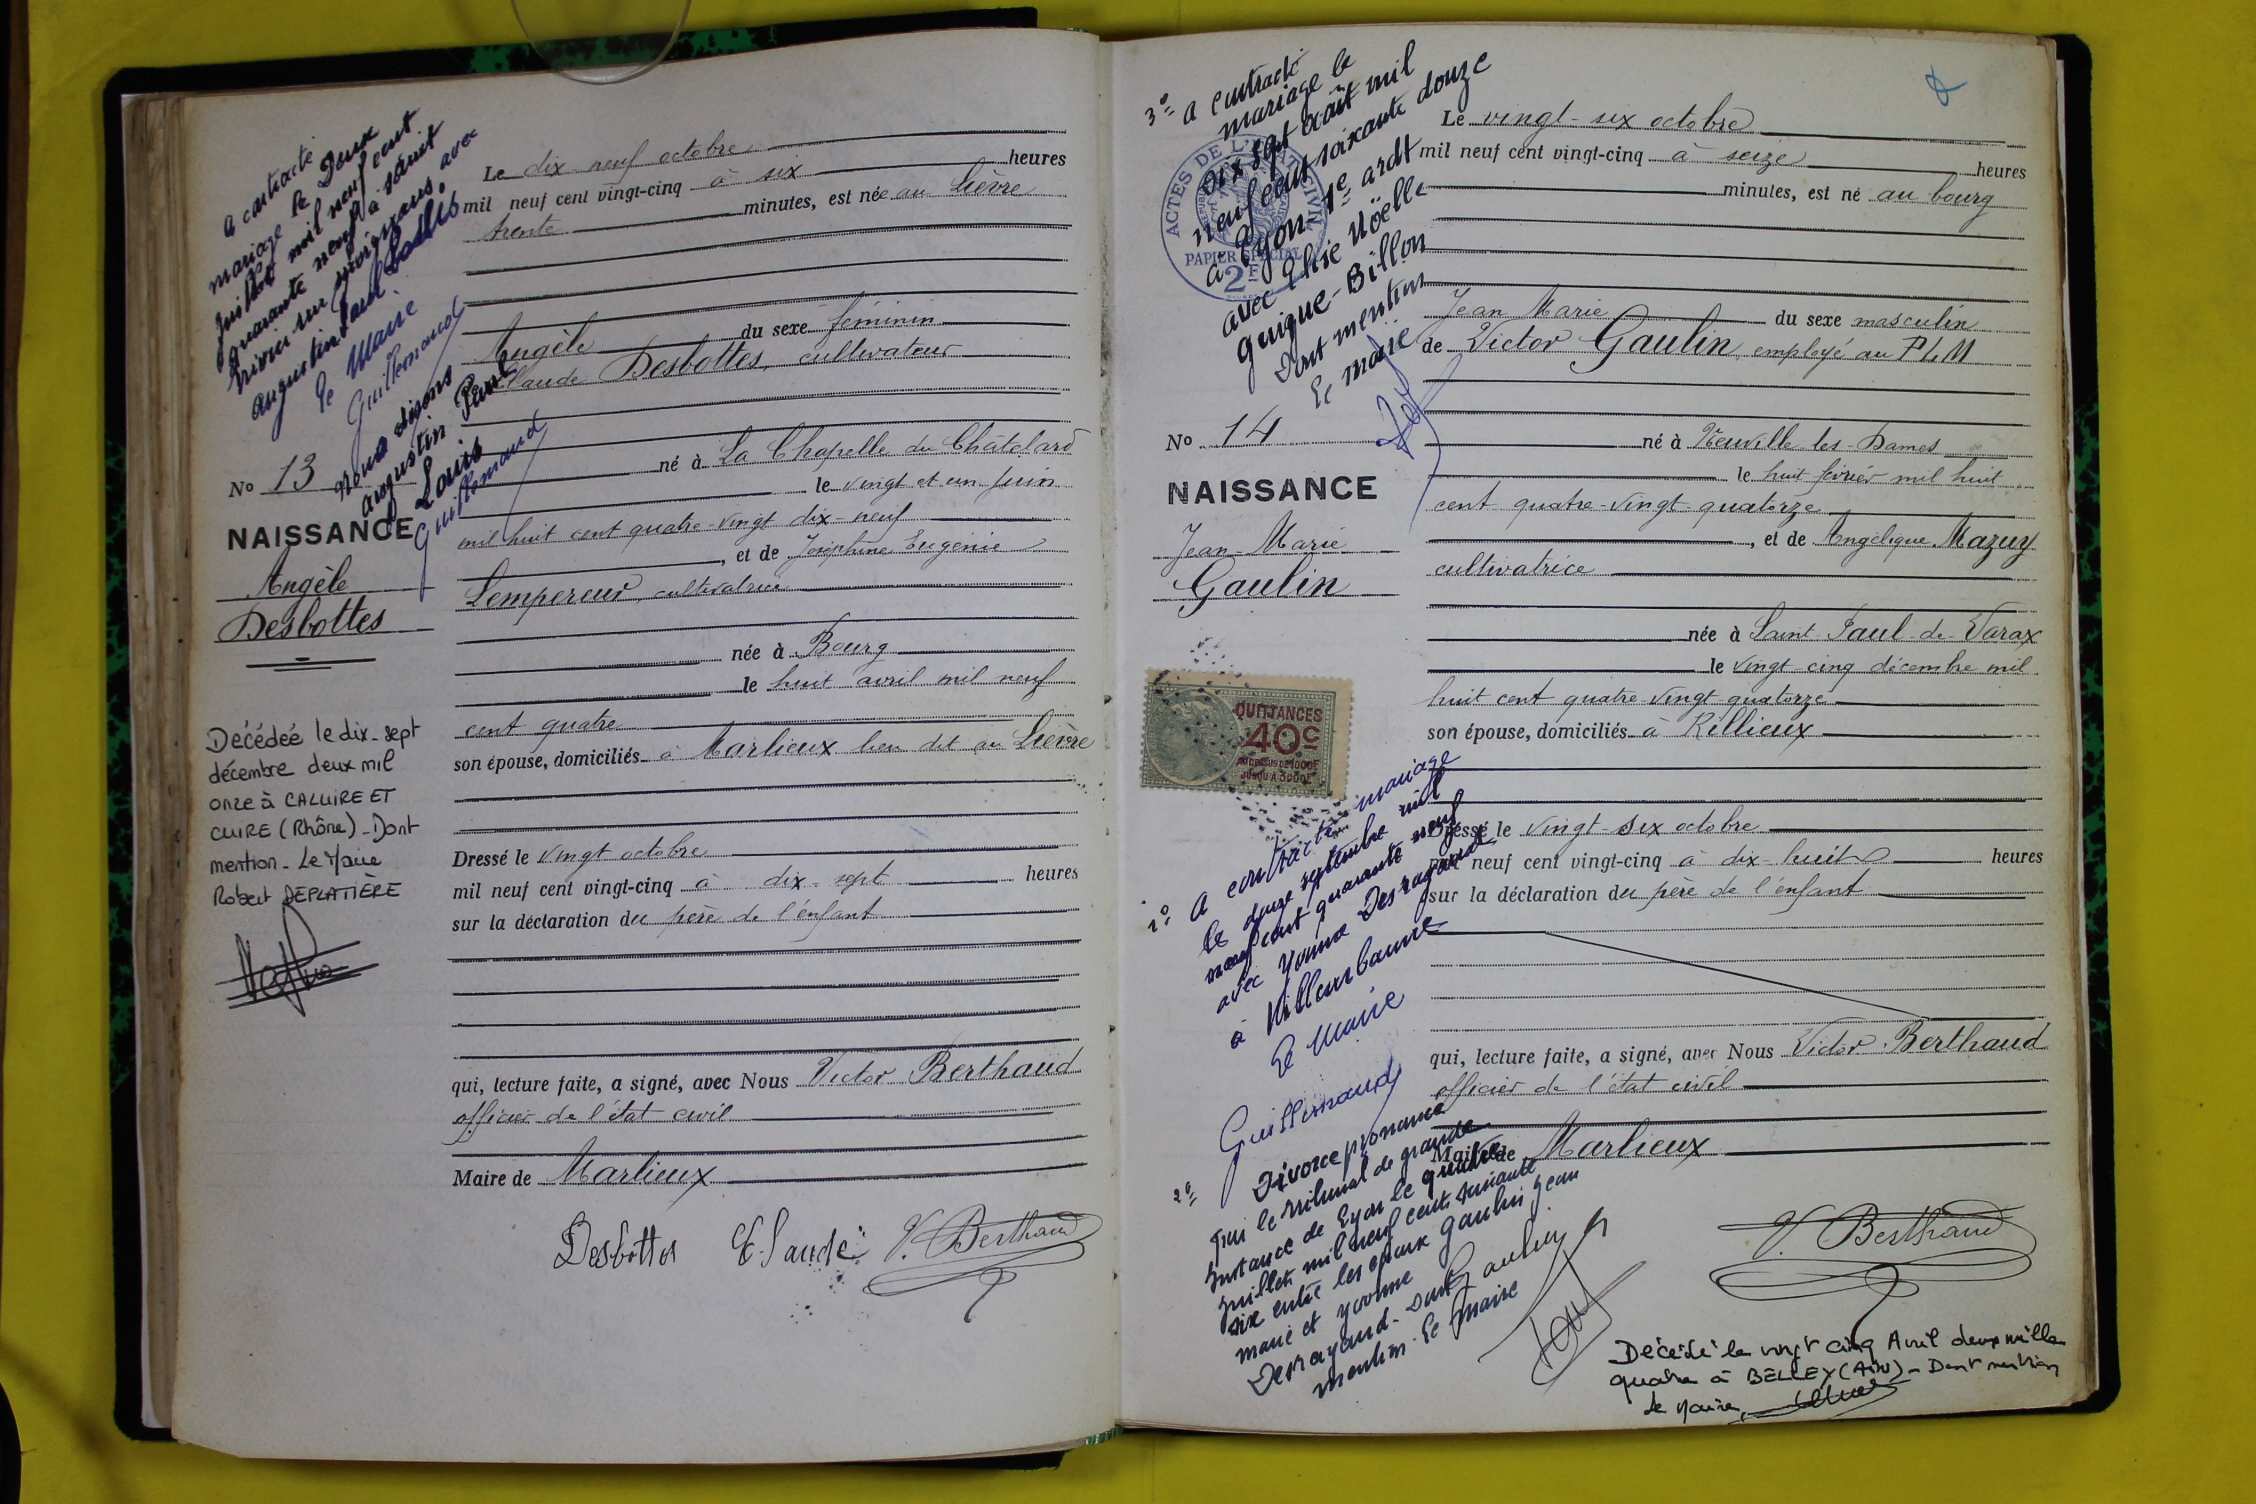 A contracté
mariage le Deux
juillet mil neuf cent
quarante neuf à saint
trivier sur moignans avec
augustin Paul Louis
le Maire
Guillemaud
Nous disons
augustin Paul
Louis
Guillemaud
No 13
NAISSANCE
Angèle
Desbottes
Décédée le dix-sept
décembre deux mil
onze à CALUIRE ET
CUIRE (Rhône)_Dont
mention_ Le Maire
Robert DEPLATIÈRE
Le dix-neuf octobre
mil neuf cent vingt-cinq à six heures
trente minutes, est née au Lièvre
Angèle du sexe féminin
Claude Desbottes, cultivateur
né à La Chapelle du Châtelard
le vingt et un juin
mil huit cent quatre-vingt dix-neuf
, et de Joséphine Eugénie
Lempereur, cultivatrice
née à Bourg
le huit avril mil neuf
cent quatre
son épouse, domiciliés à Marlieux lieu dit au Lièvre
Dressé le vingt octobre
mil neuf cent vingt-cinq à dix-sept heures
sur la déclaration du père de l'enfant
qui, lecture faite, a signé, avec Nous Victor Berthaud
officier de l'état civil
Maire de Marlieux
Desbottes Claude V. Berthaud
3° A contracté
mariage le
dix sept août mil
neuf cent soixante douze
à Lyon 1e ardt
avec Elise Noëlle
Guigue-Billon
Dont mention
Le maire
ACTES DE L'ÉTAT CIVIL
PAPIER SPÉCIAL
2F
No 14
NAISSANCE
Jean-Marie
Gaulin
QUITTANCES
40c
AU DESSUS DE 1000F
JUSQU'A 3000F
1° A contracté mariage
le douze septembre mil
neuf cent quarante neuf
avec Yvonne Desrayaud
à Villeurbanne
Le Maire
Guillemaud
2° Divorce prononcé
par le tribunal de grande
Instance de Lyon le quatre
juillet mil neuf cent soixante
six entre les époux Gaulin Jean
marie et Yvonne
Desrayaud - Dont
mention. Le maire
Le vingt-six octobre
mil neuf cent vingt-cinq à seize heures
minutes, est né au bourg
Jean Marie du sexe masculin
de Victor Gaulin, employé au P L M
né à Neuville-les-Dames
le huit février mil huit
cent quatre-vingt-quatorze
, et de Angélique Mazuy
cultivatrice
née à Saint-Paul-de-Varax
le vingt cinq décembre mil
huit cent quatre vingt quatorze
son épouse, domiciliés à Rillieux
Dressé le vingt-six octobre
mil neuf cent vingt-cinq à dix-huit heures
sur la déclaration du père de l'enfant
qui, lecture faite, a signé, avec Nous Victor Berthaud
officier de l'état civil
Maire de Marlieux
V. Berthaud
Décédé le vingt cinq Avril deux mille
quatre à BELLEY (AIN) - Dont mention
Le Maire